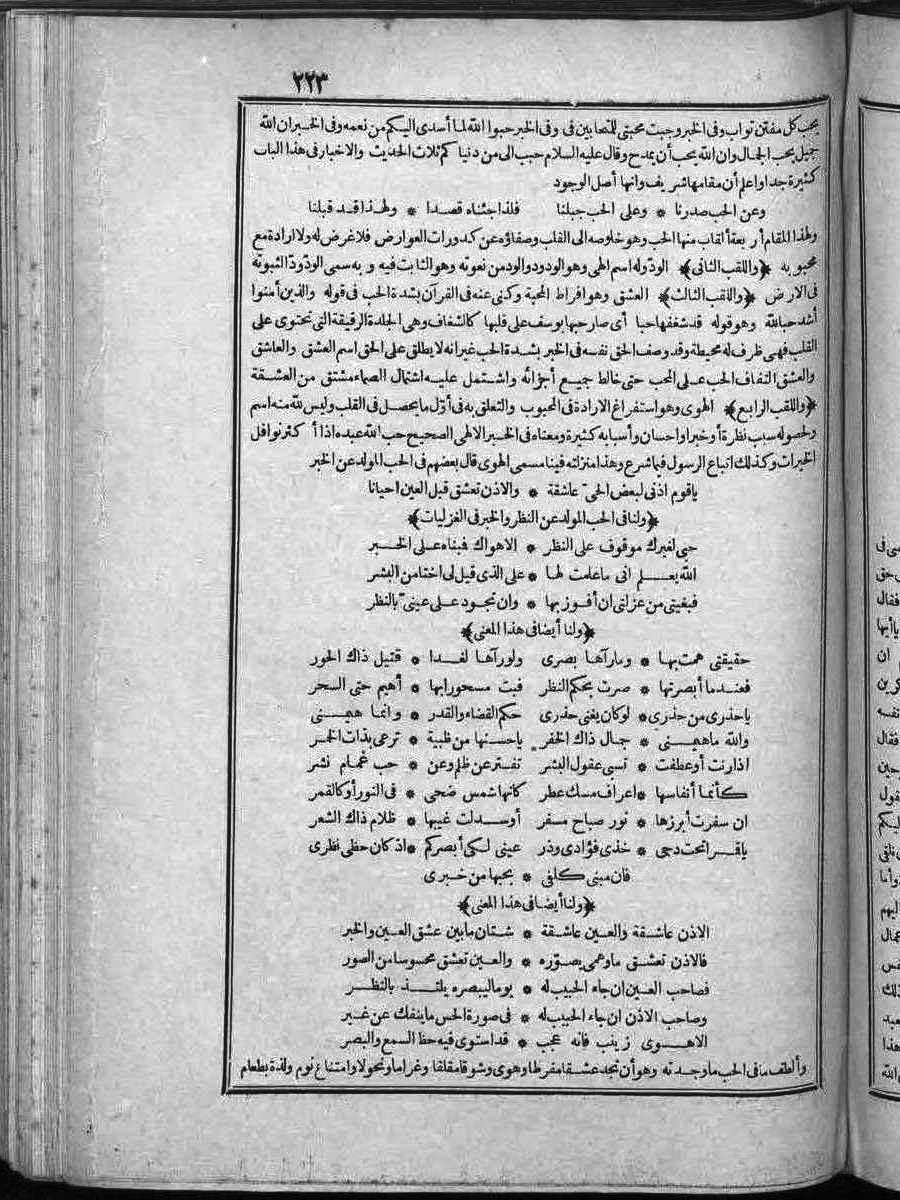 ٢٢٣
يحب كل مفتن تواب وفى الخبر وجبت محبتى للمتحابين فى وفى الخبر حبوا الله لما أسدى اليكم من نعمه وفى الخبر ان الله
جميل يحب الجمال وان الله يحب أن يمدح وقال عليه السلام حبب الى من دنياكم ثلاث الحديث والاخبار فى هذا الباب
كثيرة جدا واعلم أن مقامها شريف وانها أصل الوجود
وعن الحب صدرنا * وعلى الحب جبلنا فلذا جئناه قصدا * ولهذا قد قبلنا
ولهذا المقام أربعة ألقاب منها الحب وهو خلوصه الى القلب وصفاؤه عن كدورات العوارض فلا غرض له ولا ارادة مع
محبوبه ﴿واللقب الثانى﴾ الود وله اسم الهى وهو الودود والود من نعوته وهو الثابت فيه وبه سمى الود ودّا لثبوته
فى الارض ﴿واللقب الثالث﴾ العشق وهو افراط المحبة وكنى عنه فى القرآن بشدة الحب فى قوله والذين آمنوا
أشد حبا لله وهو قوله قد شغفها حبا أى صار حبها يوسف على قلبها كالشغاف وهى الجلدة الرقيقة التى تحتوى على
القلب فهى ظرف له محيطة وقد وصف الحق نفسه فى الخبر بشدة الحب غير انه لا يطلق على الحق اسم العشق والعاشق
والعشق التفاف الحب على المحب حتى خالط جميع أجزائه واشتمل عليه اشتمال الصماء مشتق من العشقة
﴿واللقب الرابع﴾ الهوى وهو استفراغ الارادة فى المحبوب والتعلق به فى أوّل ما يحصل فى القلب وليس لله منه اسم
ولحصوله سبب نظرة أو خبر أو احسان وأسبابه كثيرة ومعناه فى الخبر الالهى الصحيح حب الله عبده اذا أكثر نوافل
الخيرات وكذلك اتباع الرسول فيما شرع وهذا منزلته فينا مسمى الهوى قال بعضهم فى الحب المولد عن الخبر
ياقوم اذنى لبعض الحىّ عاشقة * والاذن تعشق قبل العين احيانا
﴿ولنا فى الحب المولد عن النظر والخبر فى الغزليات﴾
حبى لغيرك موقوف على النظر * الا هواك فبناه على الخبر
الله يعلم انى ما علمت لها * على الذى قيل لى اختا من البشر
فبغيتى من عزلتى ان أفوز بها * وان تجود على عينىّ بالنظر
﴿ولنا أيضا فى هذا المعنى﴾
حقيقتى همت بها * وما رآها بصرى ولو رآها لغدا * قتيل ذاك الحور
فعندما أبصرتها * صرت بحكم النظر فبت مسحورا بها * أهيم حتى السحر
ياحذرى من حذرى * لو كان يغنى حذرى حكم القضاء والقدر * وانما هيمنى
والله ما هيمنى * جمال ذاك الخفر ياحسنها من ظبية * ترعى بذات الخمر
اذا رنت أو عطفت * تسبى عقول البشر تفتر عن ظلم وعن * حب غمام نشر
كأنما أنفاسها * اعراف مسك عطر كانها شمس ضحى * فى النور أو كالقمر
ان سفرت أبرزها * نور صباح مسفر أو سدلت غيبها * ظلام ذاك الشعر
ياقمرا تحت دجى * خذى فؤادى وذر عينى لكى أبصركم * اذ كان حظى نظرى
فان مبنى كلفى * بحبها من خبرى
﴿ولنا أيضا فى هذا المعنى﴾
الاذن عاشقة والعين عاشقة * شتان ما بين عشق العين والخبر
فالاذن تعشق ما وهمى يصوّره * والعين تعشق محسوسا من الصور
فصاحب العين ان جاء الحبيب له * يوما ليبصره يلتذ بالنظر
وصاحب الاذن ان جاء الحبيب له * فى صورة الحس ما ينفك عن غير
الا هوى زينب فانه عجب * قد استوى فيه حظ السمع والبصر
وألطف ما فى الحب ما وجدته وهو أن تجد عشقا مفرطا وهوى وشوقا مقلقا وغراما ونحولا وامتناع نوم ولذة بطعام